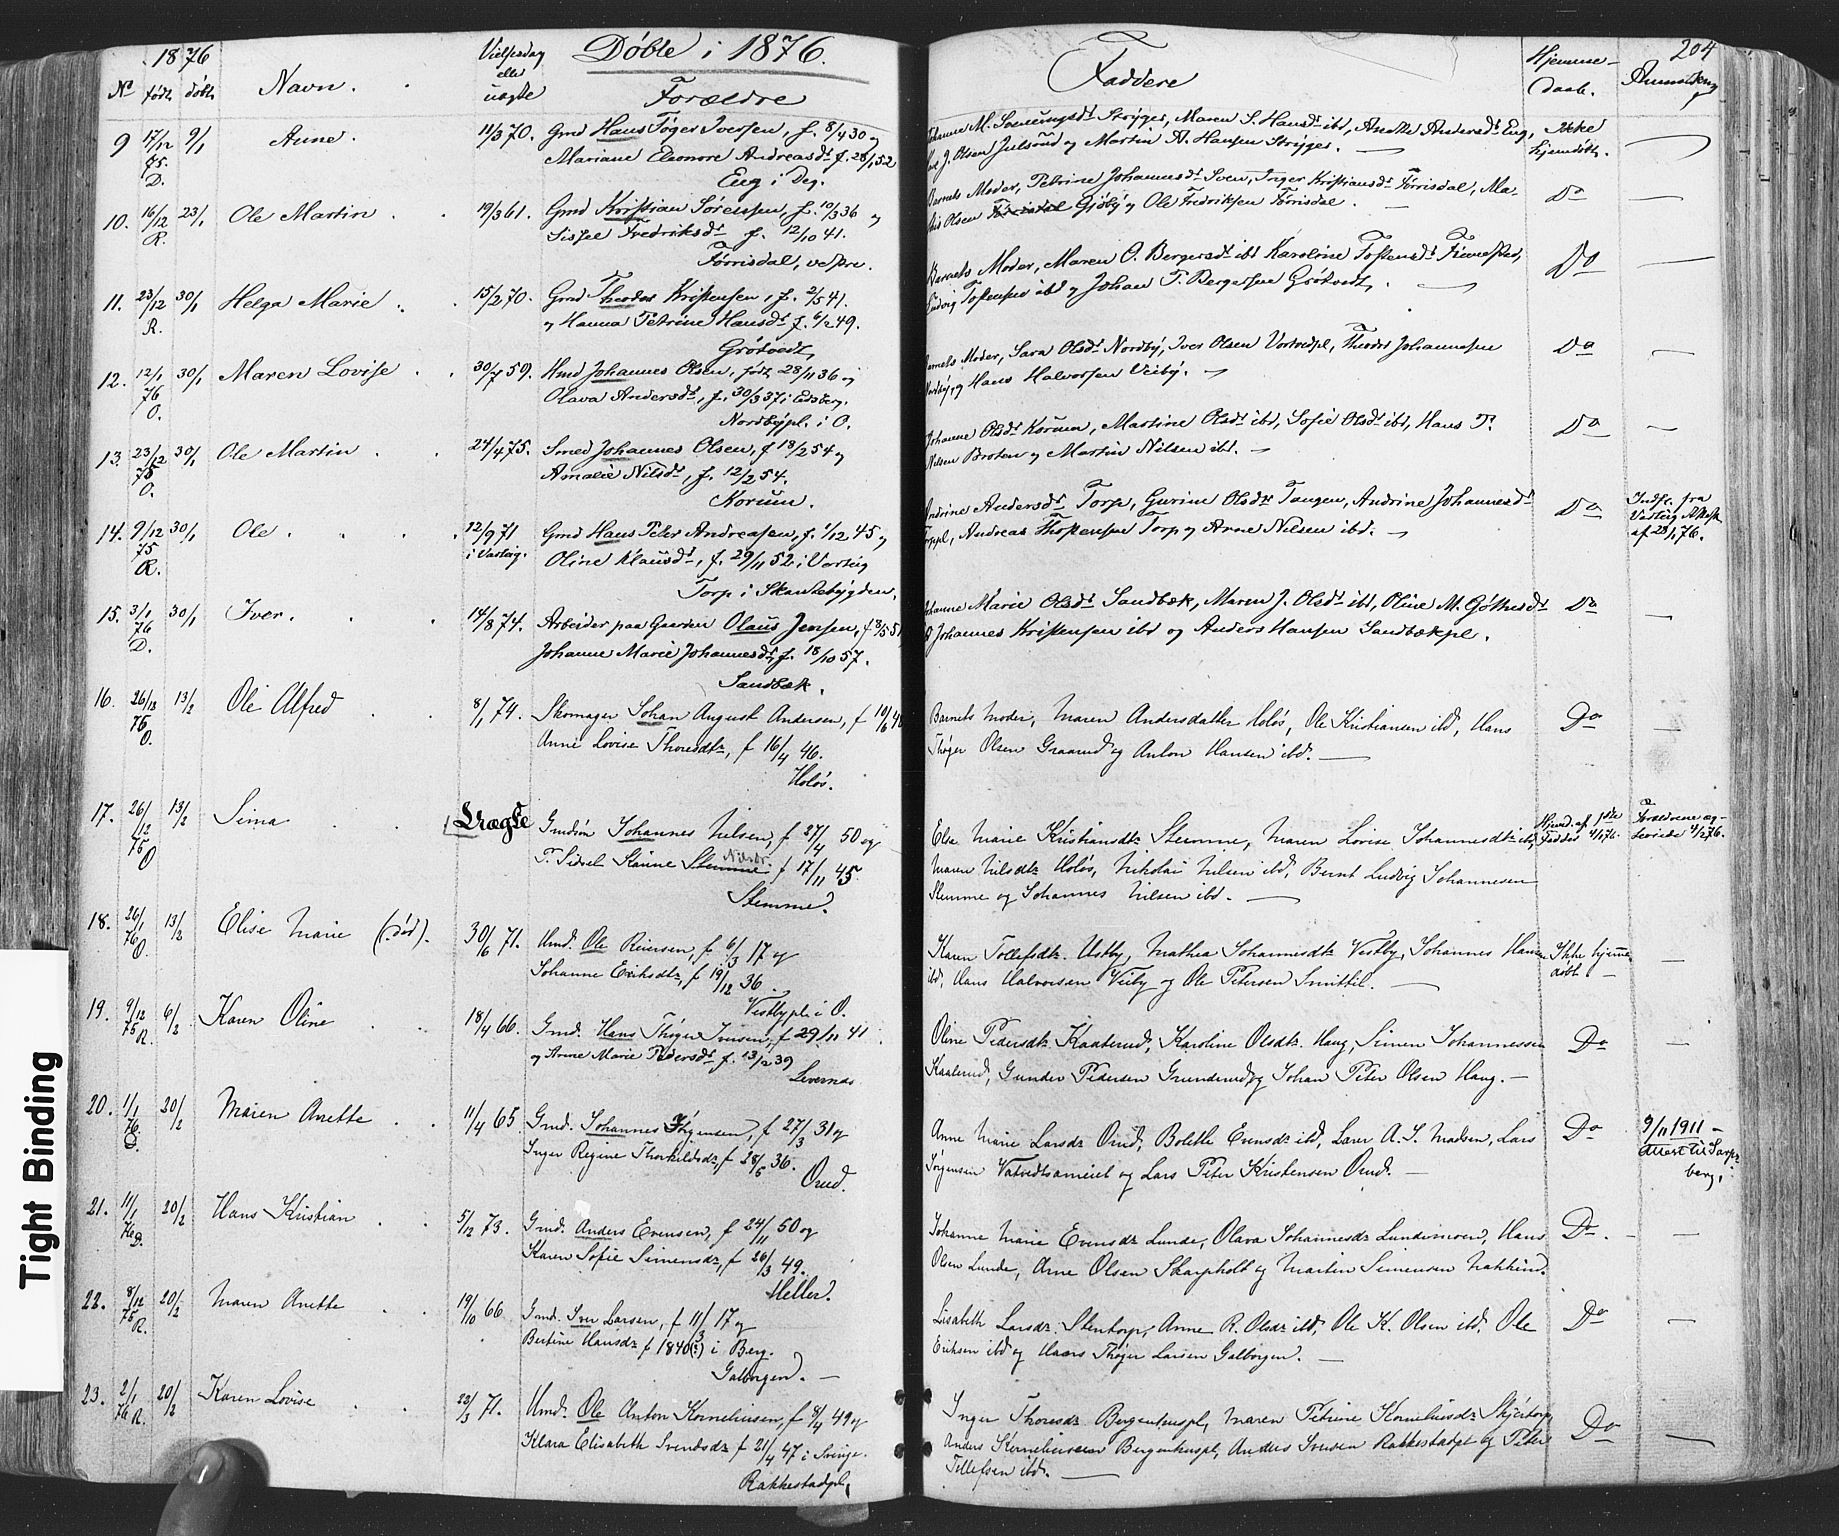 1876
Vielsesdag
eller
uægte
Døbte i 1876.
Faddere
Hjemme-
daab.
204
Anmærkng
No født døbt Navn. Forældre
9 17/12 75. D. 9/1 Anne. 11/3 70. Gmd Hans Tøger Iversen, f. 8/4 30 og
Mariane Eleonore Andreasdr f. 28/1 52
Eng i Deg.
M. Sørensdr Strÿges, Maren S. Hansdr ibd, Anette Andersdr Eng,
J. Olsen Julsrud og Martin A. Hansen Stryges. —
Ikke
hjemdøbt.
10. 16/12 R. 23/1 Ole Martin 19/3 61. Gmd Kristian Sørensen, f. 10/3 36 og
Sissel Fredriksdr f. 12/10 41.
Førrisdal, vestre.
Barnets Moder, Petrine Johannesdr Sven, Inger Kristiansdr Førrisdal, Ma-
Olsen Gjøby og Ole Fredriksen Førrisdal. —
Do —
11. 23/12 R. 30/1 Helga Marie 15/2 70. Gmd Theodor Kristensen, f. 2/5 41.
og Hanna Petrine Hansdr f. 6/2 49.
Grøtvedt,
Barnets Moder, Maren O. Bergersdr ibd Karoline Tostensdr Finnestad,
Ludvig Tostensen ibd og Johan T. Bergersen Grøtvedt. —
Do —
12. 12/1 76 O. 30/1 Maren Lovise 30/7 59. Hmd Johannes Olsen, født 28/11 36 og
Olava Andersdr, f. 30/3 37 i Eidsberg.
Nordbypl. i O.
Barnets Moder, Sara Olsdr Nordby, Iver Olsen Vortvedtpl, Theodor Johannesen
Nordby, og Hans Halvorsen Veiby. —
Do —
13. 23/12 75 O. 30/1 Ole Martin 24/4 75. Smed Johannes Olsen, f 18/2 54 og
Amalie Nilsdr, f. 12/2 54.
Korum.
Johanne Olsdr Korum, Martine Olsdr ibd, Sofie Olsdr ibd, Hans P.
Nilsen Broten og Martin Nilsen ibd. —
Do —
14. 9/12 75 R. 30/1 Ole 12/9 71 Gmd Hans Peter Andreasen, f. 1/12 45 og
i Varteig. Oline Klausdr, f. 29/11 52 i Varteig
Torp i Skantebygden.
Andrine Andersdr Torp, Gurine Olsdr Tangen, Andrine Johannesdr
Torppl, Andreas Thostensen Torp og Arne Nilsen ibd. —
Do
Indfl. fra
Varteig Attest
af 28/1 76.
15. 3/1 76 D. 30/1 Iver. 14/8 74. Arbeider paa Gaarden Olaus Jensen, f 8/5 51
Johanne Marie Johannesdr, f. 18/10 57.
Sandbæk.
Johanne Marie Olsdr Sandbæk, Maren J. Olsdr ibd, Oline M. Gøthesdr
Johannes Kristensen ibd og Anders Hansen Sandbækpl.
Do —
16. 26/12 75 O. 13/2 Ole Alfred 8/1 74. Skomager Johan August Andersen, f 10/6 48
Anne Lovise Thoresdtr, f 16/4 46.
Holøs.
Barnets Moder, Maren Andersdatter Holøs, Ole Kristiansen ibd, Hans
Thøger Olsen Graarud og Anton Hansen ibd. —
Do —
17. 26/12 75 O 13/2 Sina Uægte Gmdsøn Johannes Nilsen, f 27/4 50 og
P. Sidsel Stamme Nilsdr. f 17/11 45
Stemme.
Else Marie Kristiansdtr Stemme, Maren Lovise Johannesdtr ibd,
Maren Nilsdtr Holøs, Nikolai Nilsen ibd, Bernt Ludvig Johannesen
Stemme og Johannes Nilsen ibd. —
Hjemd. af 1ste
Fadder 4/1 76.
Forældrene æg-
teviede 4/2 76.
18. 26/1 76 O. 13/2 Elise Marie (død). 30/6 71. Hmd. Ole Reiersen, f. 6/3 17 og
Johanne Eriksdtr, f 19/12 36.
Vestbypl i O.
Karen Tollefsdtr. Ustby, Mathea Johannesdtr Vestby, Johannes Hansen
ibd, Hans Halvorsen Veiby og Ole Petersen Smittil. —
Ikke hjemme-
døbt. —
19. 9/12 75 R. 6/2 Karen Oline 18/4 66. Gmd. Hans Thøger Iversen, f 29/11 41
og Anne Marie Pedersdr f. 13/2 39
Levernæs
Oline Pedersdtr. Kaaterud, Karoline Olsdtr. Haug, Simen Johannessen
Kaaterud, Gunder Pedersen Grunderud og Johan Peter Olsen Haug. —
Do —
20. 1/1 76. O 20/2 Maren Anette 11/4 65 Gmd. Johannes Jørgensen, f 27/3 31 og
Inger Regine Thorkildsdr, f 28/5 36.
Orud.
Anne Marie Larsdr Orud, Bolette Evensdr ibd, Larer A. S. Madsen, Lars
Jørgensen Vatvedtsameiet og Lars Peter Kristensen Orud. —
Do
9/11 1911 —
attest til Sarps-
berg.
21. 11/1 76 D. 20/2 Hans Kristian 5/12 73. Gmd. Anders Evensen, f 24/11 50 og
Karen Sofie Simensdr, f 26/3 49.
Heller.
Johanne Marie Evensdr Lunde, Olava Johannesdr Lundemoen, Hans
Olsen Lunde, Arne Olsen Skarpholt og Martin Simensen Nakkim.
Do. — —
22. 8/12 75 R. 20/2 Maren Anette 19/10 66 Gmd. Iver Larsen, f 11/3 17 og
Bertine Hansdr f 1840(?) i Berg.
Galborgen. —
Lisabeth Larsdr. Stentorp, Anne R. Olsdr ibd, Ole K. Olsen ibd, Ole
Eriksen ibd og Hans Thøger Larsen Galborgen. —
Do —
23. 2/1 76 R. 20/2 Karen Lovise 23/3 71. Hmd. Ole Anton Korneliusen, f 8/4 49 og
Klara Elisabeth Svendsdr f 21/4 47 i Svinge.
Rakkestadpl,
Inger Thoresdr Bergenhuspl, Maren Petrine Korneliusdr Skjøtorp,
Anders Korneliussen Bergenhuspl, Anders Iversen Rakkestadpl og Peter
Tollefsen ibd. —
Do —
Tight Binding